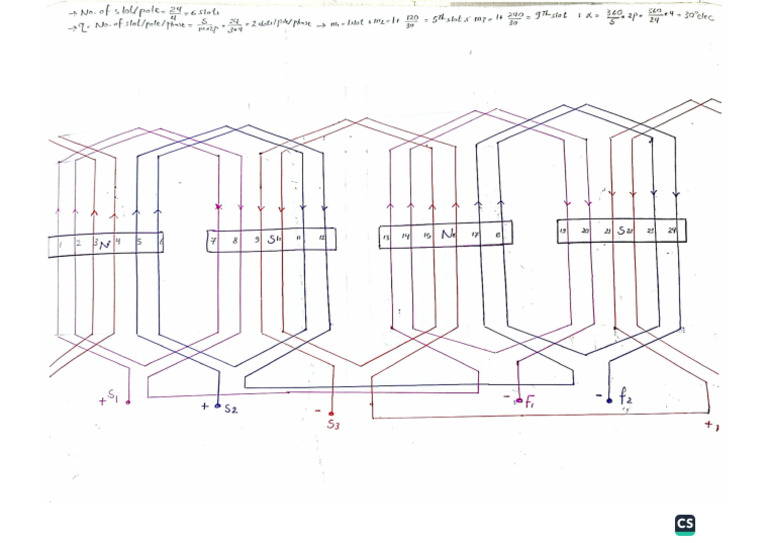 → No. of slot/pole = 24/4 = 6 slots
→ q = No. of slot/pole/phase = S/m×2p = 24/3×4 = 2 slots/pole/phase → m₁ = 1 slot, m₂ = 1 + 120/30 = 5th slot, m₃ = 1 + 240/30 = 9th slot, α = 360/S × 2p = 360/24 × 4 = 30° elec
1 2 3 N₁ 4 5 6 7 8 9 S₁ 10 11 12 13 14 15 N₂ 16 17 18 19 20 21 S₂ 22 23 24
+ S₁ + S₂ - S₃ - F₁ - f₂ +
CS